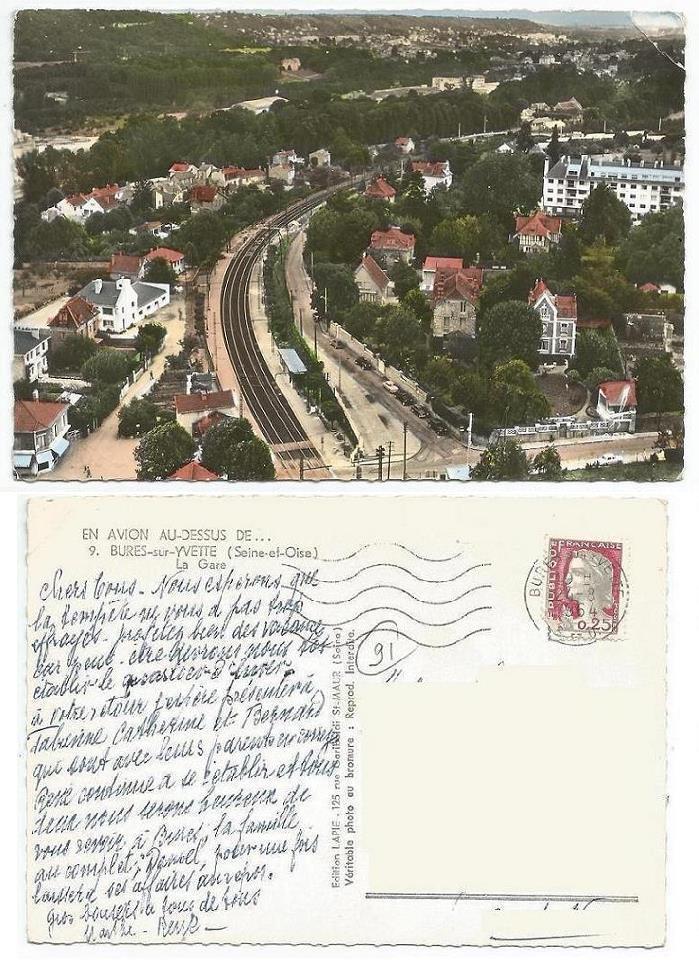 EN AVION AU-DESSUS DE...
9. BURES-sur-YVETTE (Seine-et-Oise)
La Gare
Chers tous. Nous espérons que
la tempête ne vous a pas trop
effrayés. profitez bien des vacances
car pour être devrons nous
établir le quartier d'hiver
à votre retour j'espère présenter à
Fabienne Catherine et Bernard
qui sont avec leurs parents en
René continue à se établir et tous
deux nous serons heureux de
vous revoir à Bures, la famille
au complet, pour une fois
laissera ses affaires au repos.
gros baisers à tous de tous
René
BURES
64
REPUBLIQUE FRANÇAISE
0,25
91
Edition LAPIE - 125 rue Garibaldi St-MAUR (Seine)
Véritable photo au bromure : Reprod. Interdite.